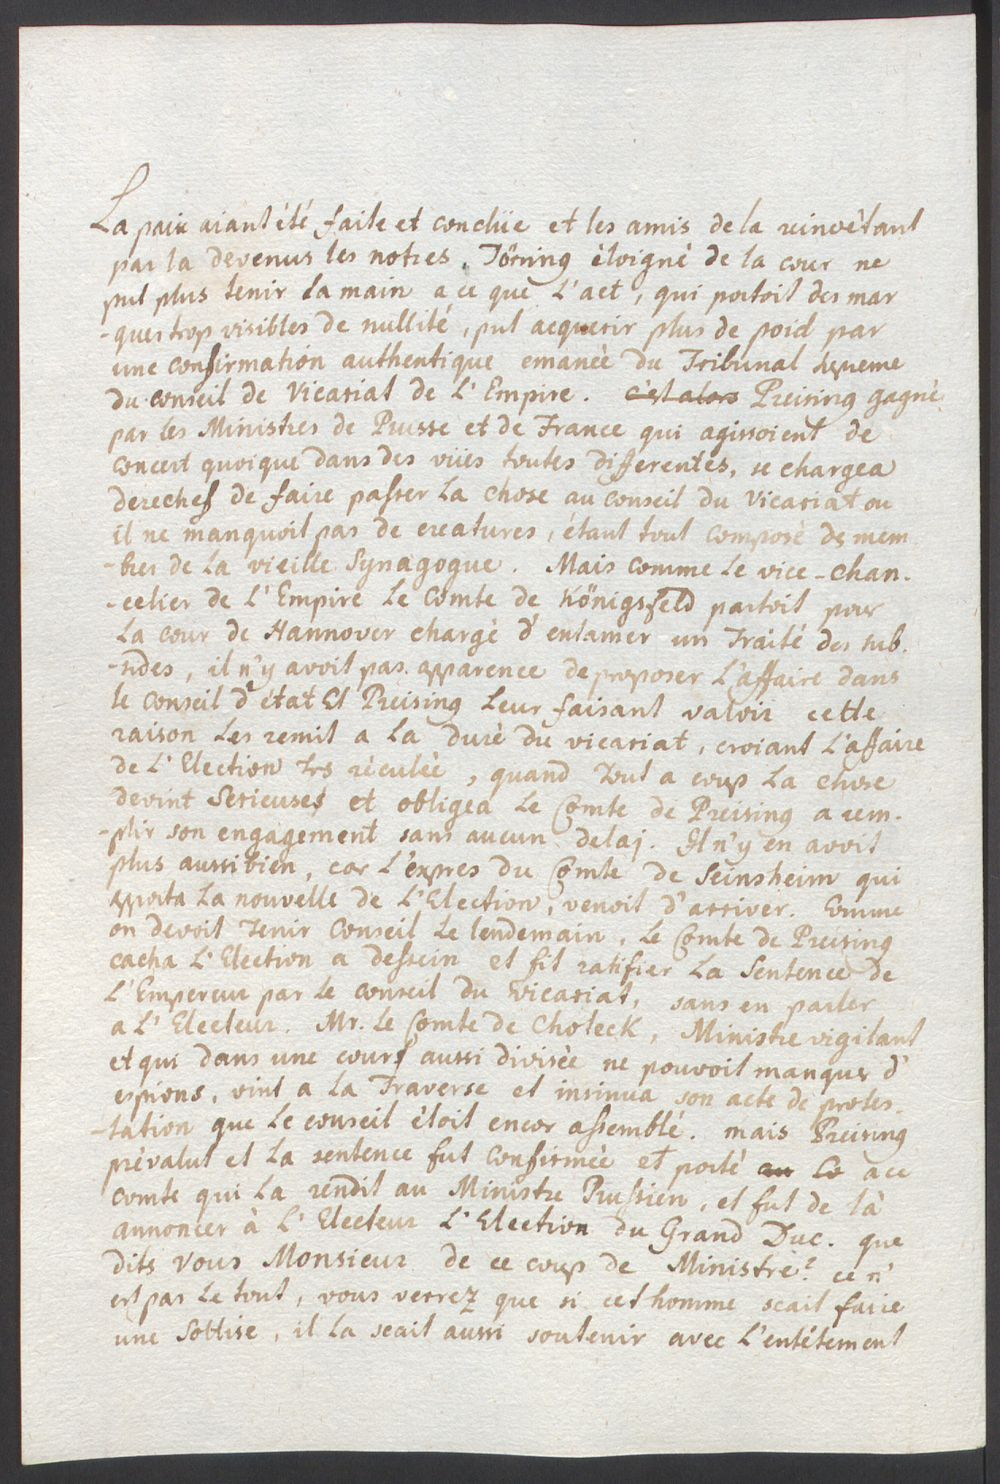 La paix aiant été faite et conclüe et les amis de la reine étant
par la devenus les notres, Törring éloigné de la cour ne
put plus tenir la main a ce que l'act, qui portoit des mar
-ques trop visibles de nullité, put acquerir plus de poid par
une confirmation authentique emanée du Tribunal supreme
du conseil de Vicariat de l'Empire. c'est alors Preising gagné
par les Ministres de Prusse et de France qui agissoient de
concert quoique dans des vües toutes differentes, se chargea
derechef de faire passer la chose au conseil du Vicariat ou
il ne manquoit pas de creatures, étant tout composé de mem
-bres de la vieille Synagogue. Mais comme le vice-chan-
-celier de l'Empire le Comte de Königsfeld partoit pour
la cour de Hannover chargé d'entamer un Traité des sub-
-sides, il n'y avoit pas apparence de proposer l'affaire dans
le conseil d'état et Preising leur faisant valoir cette
raison les remit a la duré du vicariat, croiant l'affaire
de l'Election trs réculée, quand tout a coup la chose
devint Serieuses et obligea le Comte de Preising a rem-
-plir son engagement sans aucun delaj. Il n'y en avoit
plus aussi bien, car l'éxpres du Comte de Seinsheim qui
apporta la nouvelle de l'Election, venoit d'arriver. Comme
on devoit Tenir Conseil le lendemain, le Comte de Preising
cacha l'Election a dessein et fit ratifier la Sentence de
l'Empereur par le conseil du vicariat, sans en parler
a l'Electeur. Mr. le Comte de Choteck, Ministre vigilant
et qui dans une cours aussi divisée ne pouvoit manquer d'
espions, vint a la Traverse et insinua son acte de protes-
-tation que le conseil étoit encor assemblé. mais Preising
prévalut et la sentence fut confirmée et porté au Co a ce
comte qui la rendit au Ministre Prussien, et fut de là
annoncer à l'Electeur l'Election du Grand Duc. que
dits vous Monsieur de ce coup de Ministre? ce n'
est pas le tout, vous verrez que si cet homme scait faire
une Sottise, il la scait aussi soutenir avec l'entétement